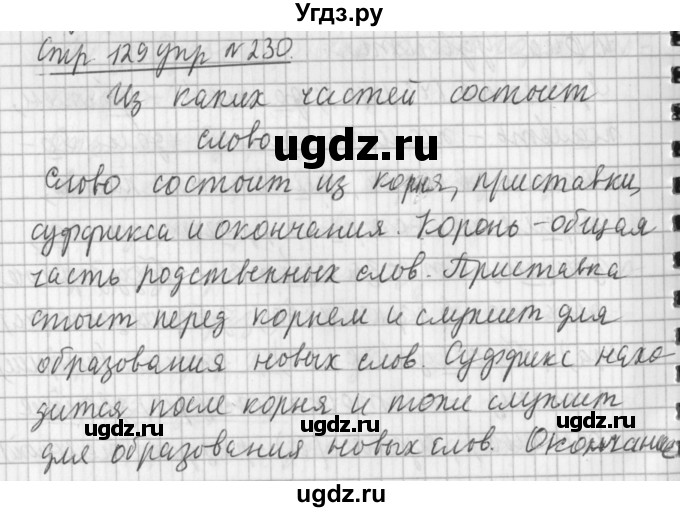 Угдз.ру
Стр 129 упр №230.
Из каких частей состоит
слово
ugdz.ru
Слово состоит из корня, приставки,
суффикса и окончания. Корень - общая
часть родственных слов. Приставка
стоит перед корнем и служит для
образования новых слов. Суффикс нахо-
дится после корня и тоже служит
ugdz.ru ugdz.ru
для образования новых слов. Окончание
ugdz.ru